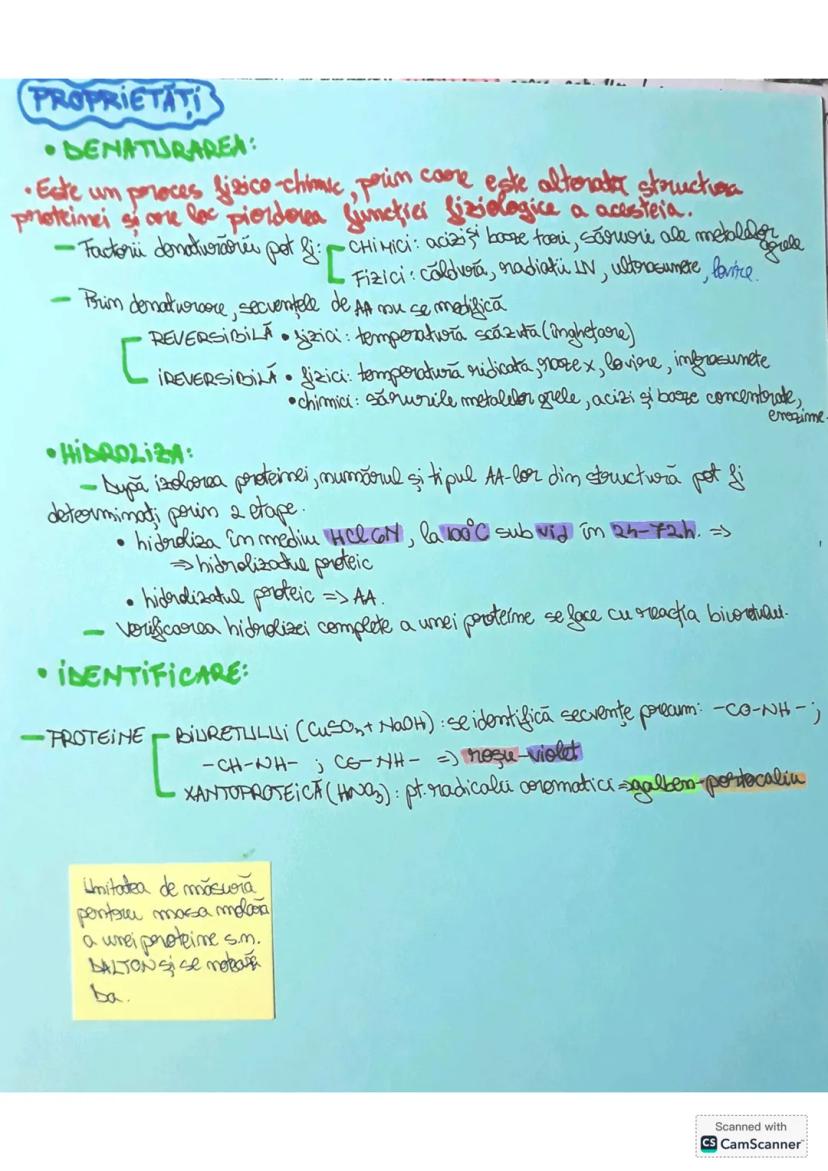 PROPRIETĂȚI
• DENATURAREA:
• Este un proces fizico-chimic, prin care este alterată structura
proteinei și are loc pierderea funcției fiziologice a acesteia.
– Factorii denaturării pot fi: CHIMICI: acizi și baze tari, sărurile ale metalelor grele
FIZICI: căldură, radiații UV, ultrasunete, lovire.
– Prin denaturare, secvențele de AA nu se modifică
REVERSIBILĂ • fizici: temperatură scăzută (înghețare)
IREVERSIBILĂ • fizici: temperatură ridicată, raze x, lovire, infrasunete
• chimici: sărurile metalelor grele, acizi și baze concentrate,
enzime.
• HIDROLIZA:
– După izolarea proteinei, numărul și tipul AA-lor din structură pot fi
determinați prin 2 etape.
• hidroliza în mediu HCl 6N, la 100°C sub vid în 24-72h. =>
=> hidrolizatul proteic
• hidrolizatul proteic => AA.
– Verificarea hidrolizei complete a unei proteine se face cu reacția biuretului.
• IDENTIFICARE:
– PROTEINE BIURETULUI (CuSO₄ + NaOH): se identifică secvențe precum: -CO-NH- ;
-CH-NH- ; CO-NH- => roșu-violet
XANTOPROTEICĂ (HNO₃): pt. radicalii aromatici => galben-portocaliu
Unitatea de măsură
pentru masa molară
a unei proteine s.n.
DALTON și se notează
Da.
Scanned with
CS CamScanner